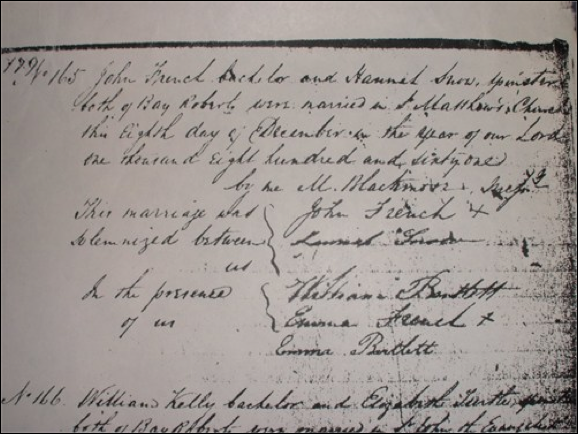 No 165 John French bachelor and Hannah Snow, spinster
both of Bay Roberts were married in St Matthew's Church
this Eighth day of December in the year of our Lord
one thousand Eight hundred and sixty one
by me M. Blackmore,
This marriage was John French +
solemnized between Snow
us
In the presence William Bartlett
of us Emma French +
Emma Bartlett
No 166. William Kelly bachelor and Elizabeth spinster
both of Bay Roberts were married in St John the Evangelist